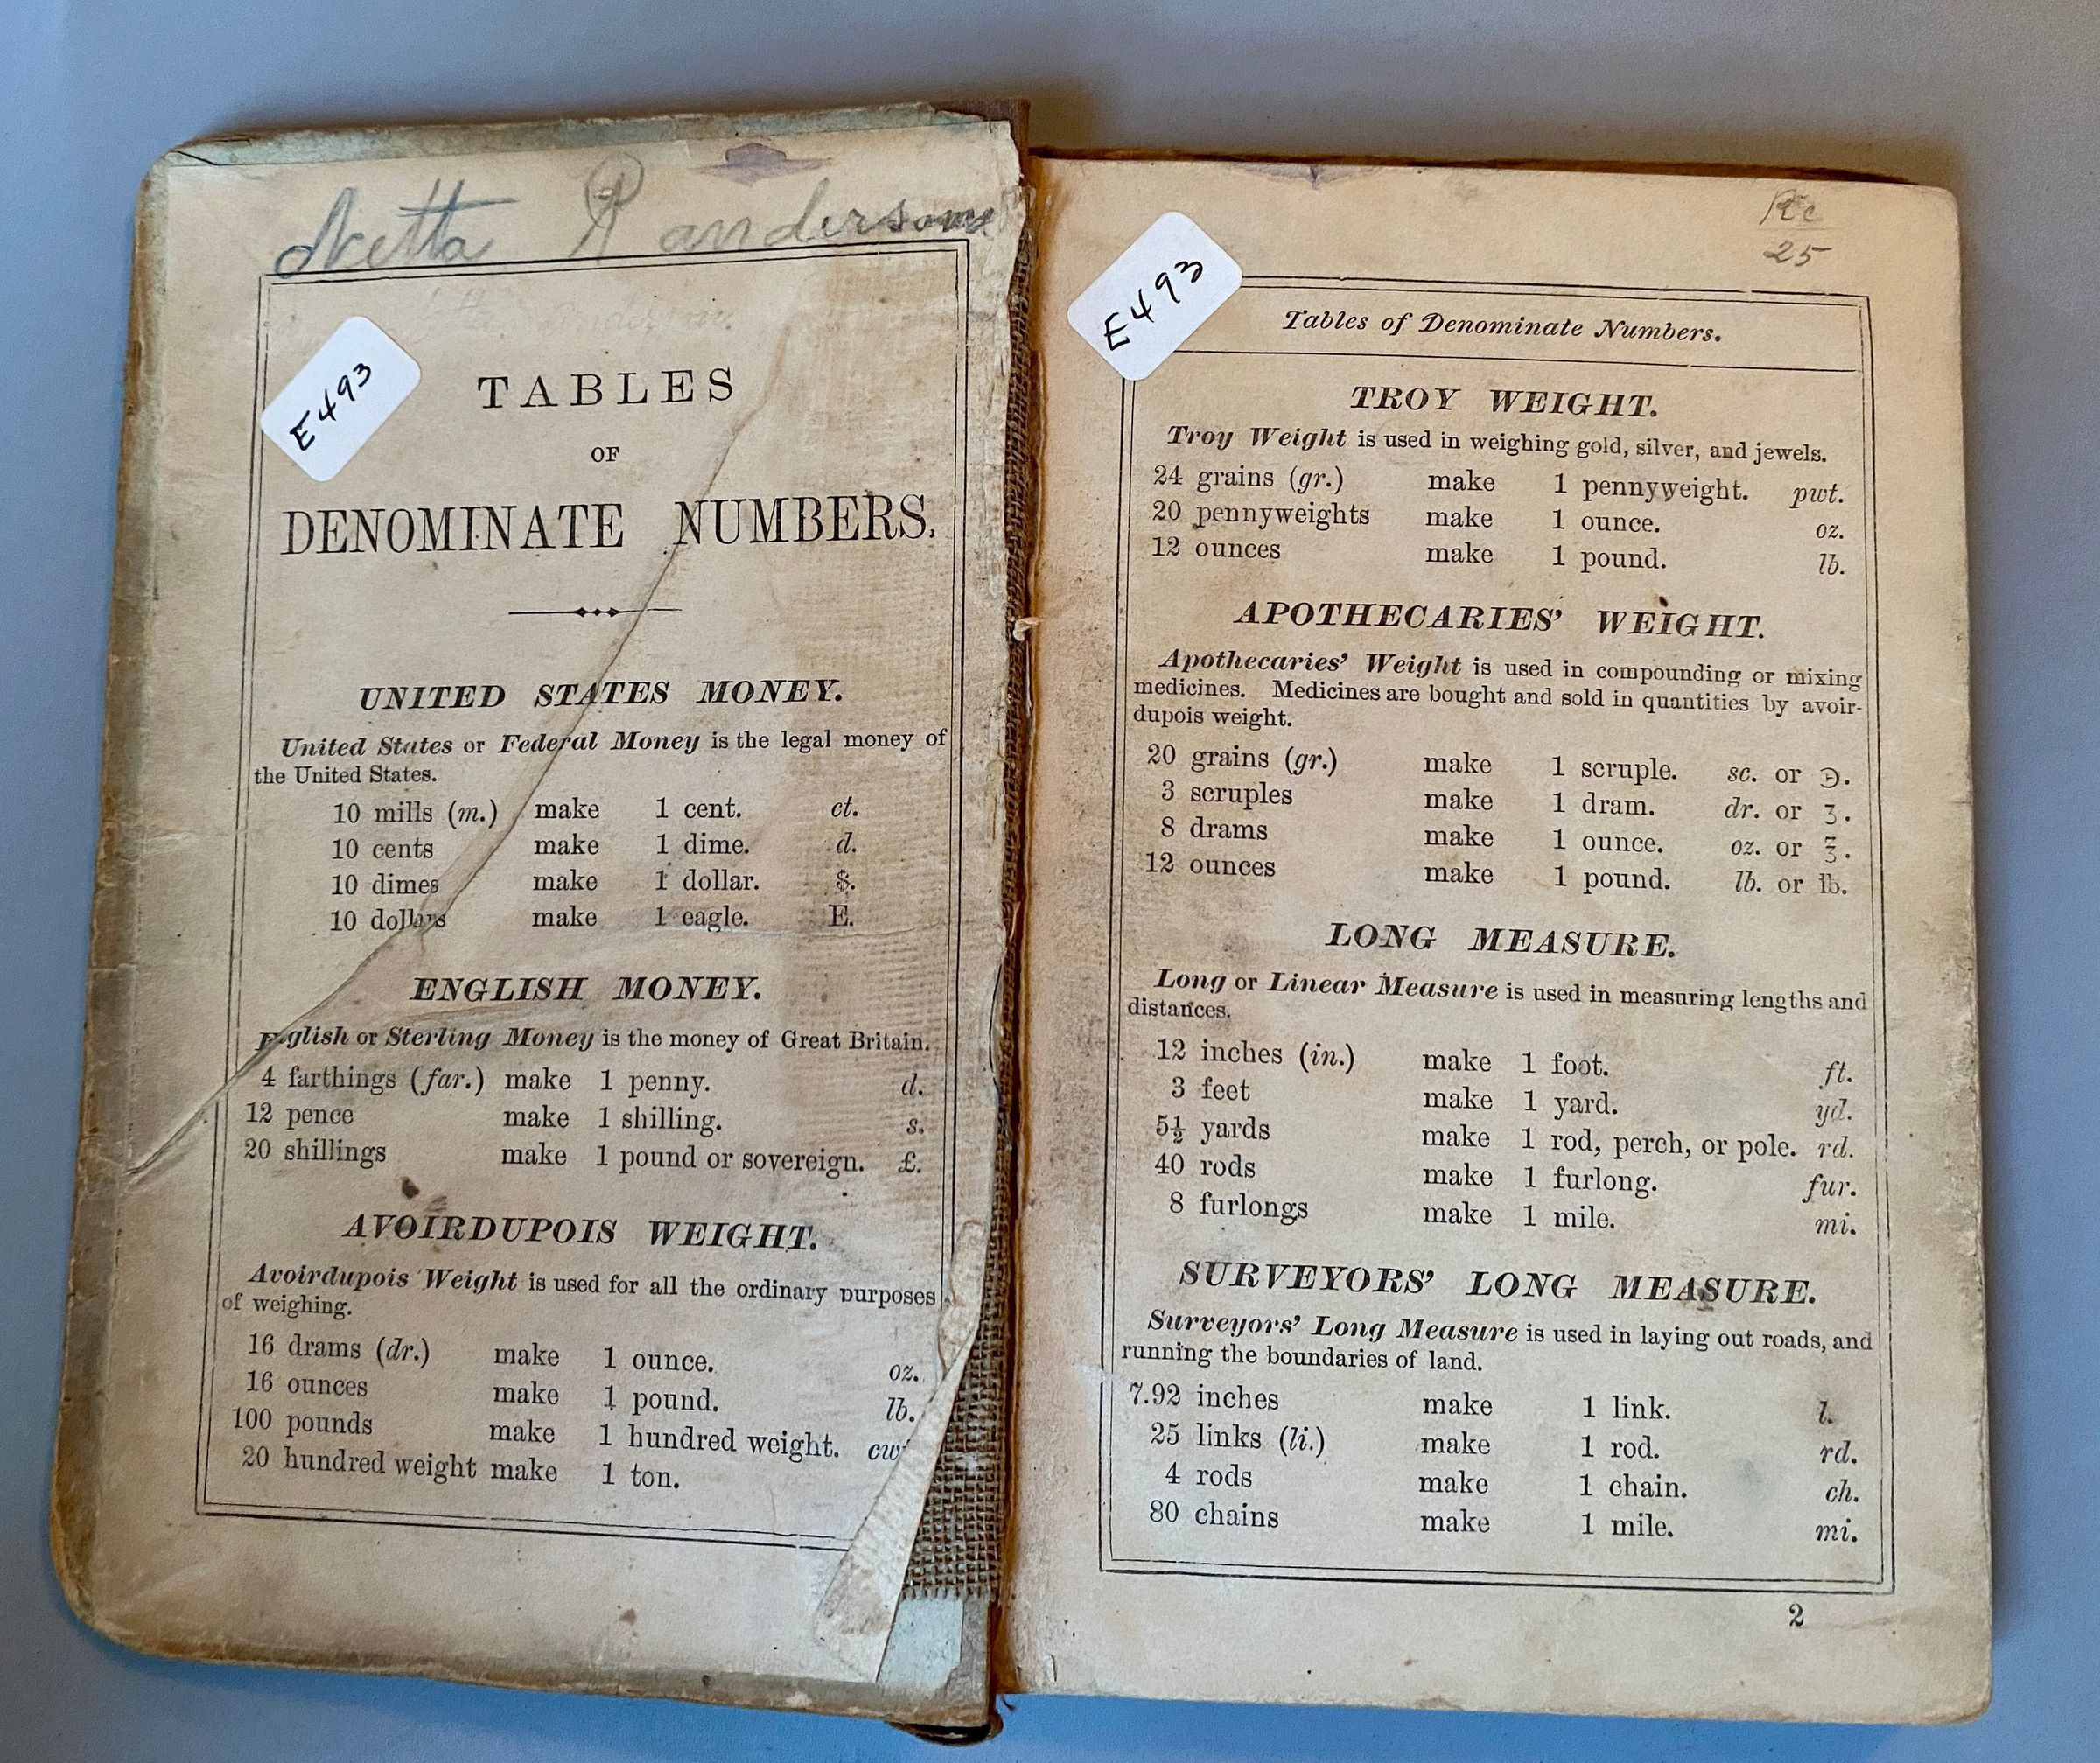 Netta R andersons
E493
TABLES
OF
DENOMINATE NUMBERS.
UNITED STATES MONEY.
United States or Federal Money is the legal money of
the United States.
10 mills (m.) make 1 cent. ct.
10 cents make 1 dime. d.
10 dimes make 1 dollar. $.
10 dollars make 1 eagle. E.
ENGLISH MONEY.
English or Sterling Money is the money of Great Britain.
4 farthings (far.) make 1 penny. d.
12 pence make 1 shilling. s.
20 shillings make 1 pound or sovereign. £.
AVOIRDUPOIS WEIGHT.
Avoirdupois Weight is used for all the ordinary purposes
of weighing.
16 drams (dr.) make 1 ounce. oz.
16 ounces make 1 pound. lb.
100 pounds make 1 hundred weight. cwt
20 hundred weight make 1 ton.
25
E493
Tables of Denominate Numbers.
TROY WEIGHT.
Troy Weight is used in weighing gold, silver, and jewels.
24 grains (gr.) make 1 pennyweight. pwt.
20 pennyweights make 1 ounce. oz.
12 ounces make 1 pound. lb.
APOTHECARIES' WEIGHT.
Apothecaries' Weight is used in compounding or mixing
medicines. Medicines are bought and sold in quantities by avoir-
dupois weight.
20 grains (gr.) make 1 scruple. sc. or ℈.
3 scruples make 1 dram. dr. or ʒ.
8 drams make 1 ounce. oz. or ℥.
12 ounces make 1 pound. lb. or ℔.
LONG MEASURE.
Long or Linear Measure is used in measuring lengths and
distances.
12 inches (in.) make 1 foot. ft.
3 feet make 1 yard. yd.
5½ yards make 1 rod, perch, or pole. rd.
40 rods make 1 furlong. fur.
8 furlongs make 1 mile. mi.
SURVEYORS' LONG MEASURE.
Surveyors' Long Measure is used in laying out roads, and
running the boundaries of land.
7.92 inches make 1 link. l.
25 links (li.) make 1 rod. rd.
4 rods make 1 chain. ch.
80 chains make 1 mile. mi.
2